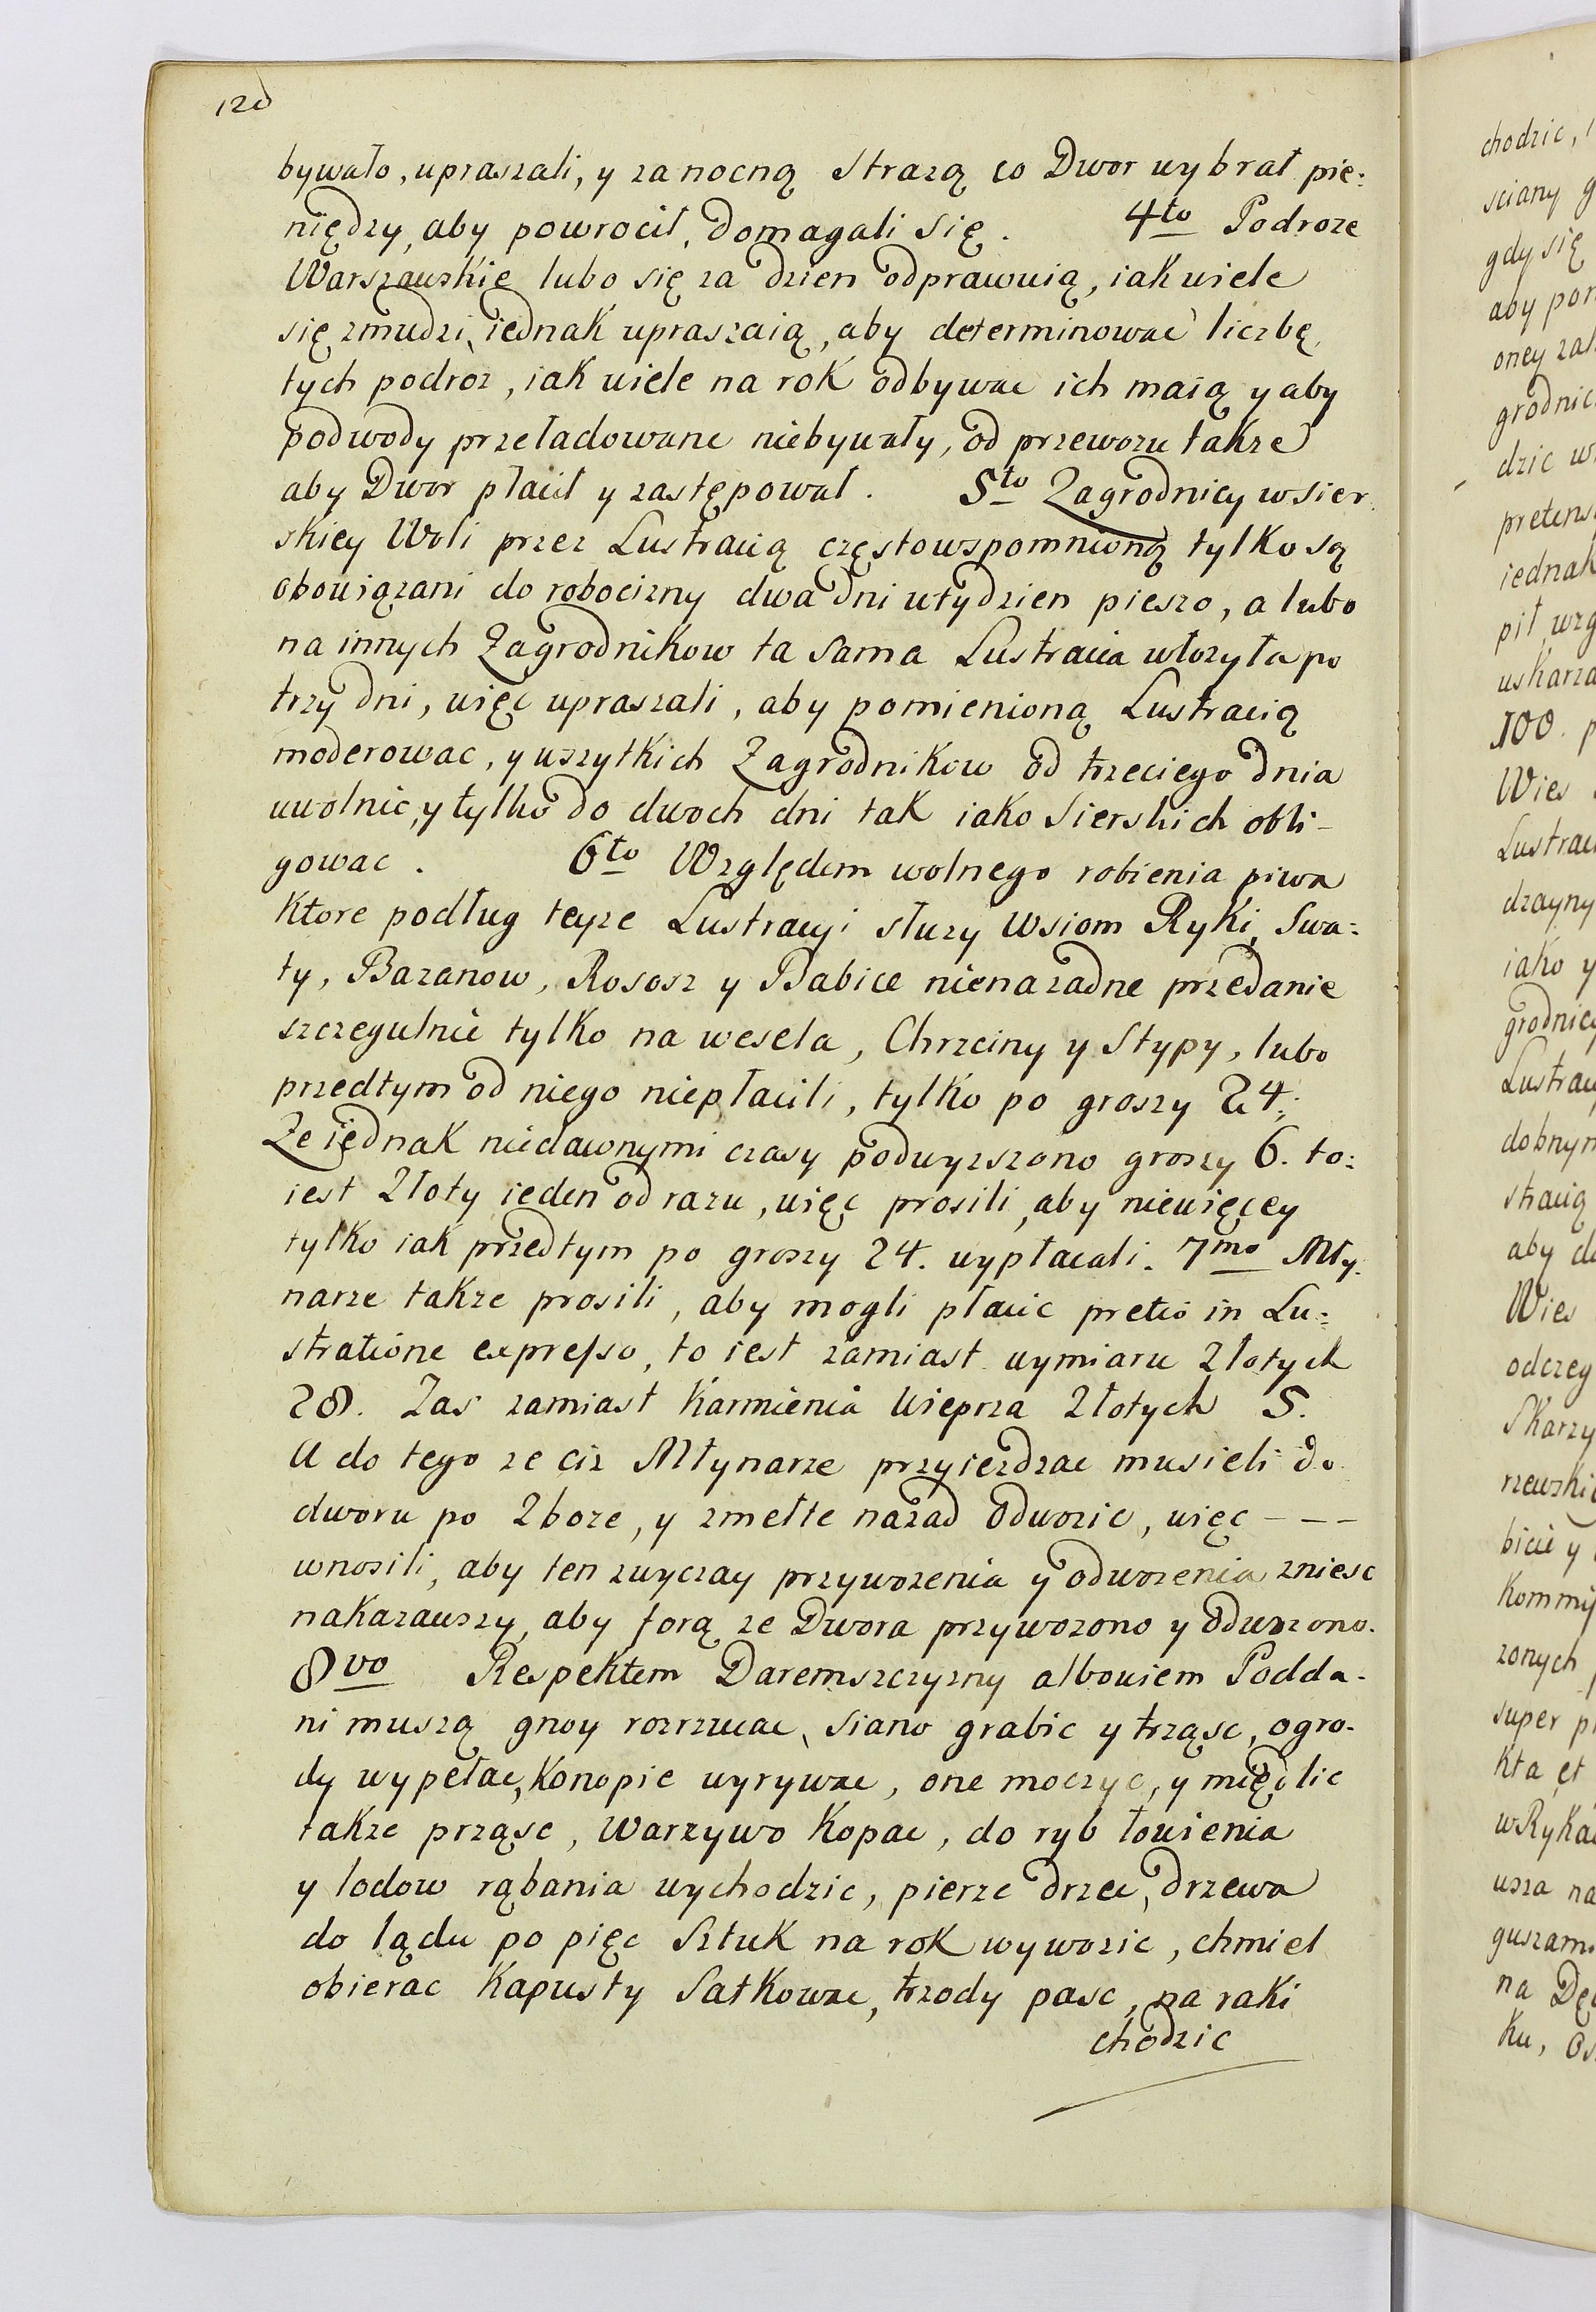 128
bywało, upraszali, y za nocną Strazą co Dwor wybrał pie:
niędzy, aby powrocił, domagali Się. 4to Podroze
Warszawskie lubo się za dzien odprawuią, iak wiele
się zmudzi, iednak upraszaią, aby determinowac liczbę
tych podroz, iak wiele na rok odbywac ich maią y aby
podwody przeładowane niebywały, od przewozu także
aby Dwor płacił y zastępował. 5to Zagrodnicy w Sier
skiey Woli przez Lustracią częstowspomnioną tylko są
obowiązani do robocizny dwa dni w tydzien pieszo, a lubo
na innych Zagrodnikow ta Sama Lustracia włozyła po
trzy dni, więc upraszali, aby pomienioną Lustracią
moderowac, y wszytkich Zagrodnikow od trzeciego dnia
uwolnic, y tylko do dwoch dni tak iako Sierskich obli-
gowac. 6to Względem wolnego robienia piwa
Ktore podług teyze Lustracyi słuzy Wsiom Ryki, Swa:
ty, Bazanow, Rososz y Babice nienazadne przedanie
szczegulnie tylko na wesela, Chrzciny y Stypy, lubo
przedtym od niego niepłacili, tylko po groszy 24:
Ze iednak niedawnymi czasy podwyzszono groszy 6. to:
iest Złoty ieden od razu, więc prosili, aby niewięcey
tylko iak przedtym po groszy 24. wypłacali. 7mo Mły:
narze takze prosili, aby mogli płacic pretio in Lu:
stratione expresso, to iest zamiast wymiaru Złotych
28. Zas zamiast Karmienia Wieprza Złotych 5.
A do tego ze ciz Młynarze przyiezdzac musieli do
dworu po Zboze, y zmełte nazad odwozic, więc - - -
wnosili, aby ten zwyczay przywozenia y odwozenia zniesc
nakazawszy, aby forą ze Dwora przywozono y odwozono.
8vo Respektem Daremszczyzny albowiem Podda-
ni muszą gnoy rozrzucac, Siano grabic y trząsc, ogro-
dy wypełac, Konopie wyrywac, one moczyc, y międlic
takze prząsc, Warzywo Kopac, do ryb łowienia
y lodow rąbania wychodzic, pierze drzec, drzewa
do lądu po pięc Sztuk na rok wywozic, chmiel
obierac Kapusty Satkowac, trzody pasc, na raki
chodzic
chodzic,
sciany
gdy się
aby
oney
dzic
iednak
100.
Wies
iako y
aby
Wies
Kta et
na